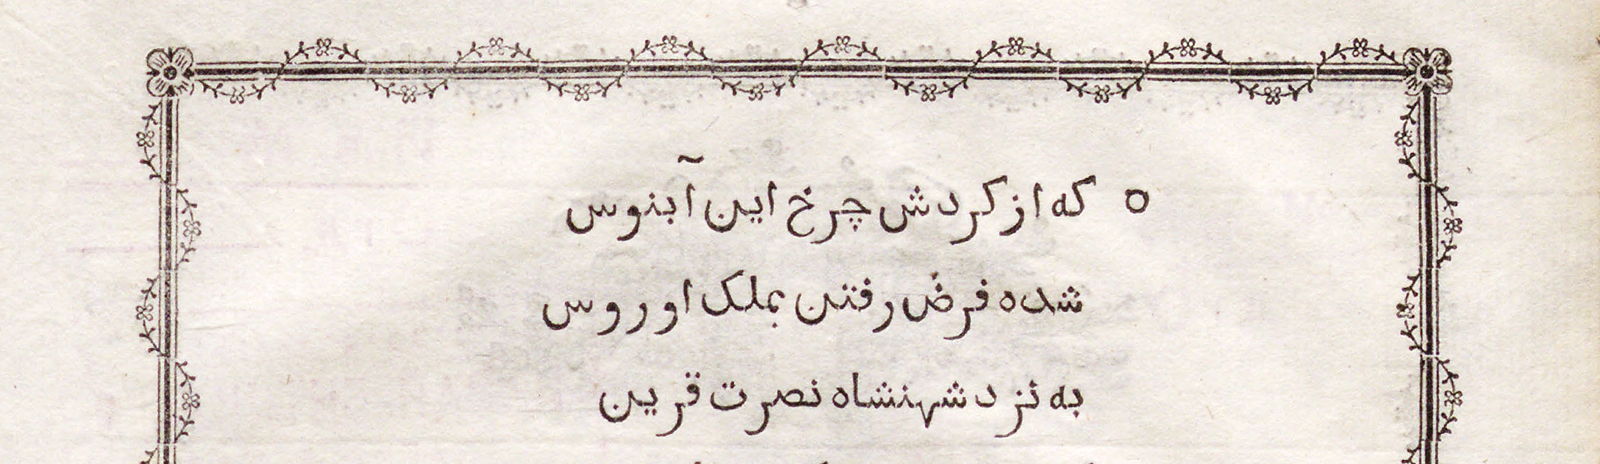 ه که از کردش چرخ این آبنوس
شده فرض رفتن بملک اوروس
به نزد شهنشاه نصرت قرین